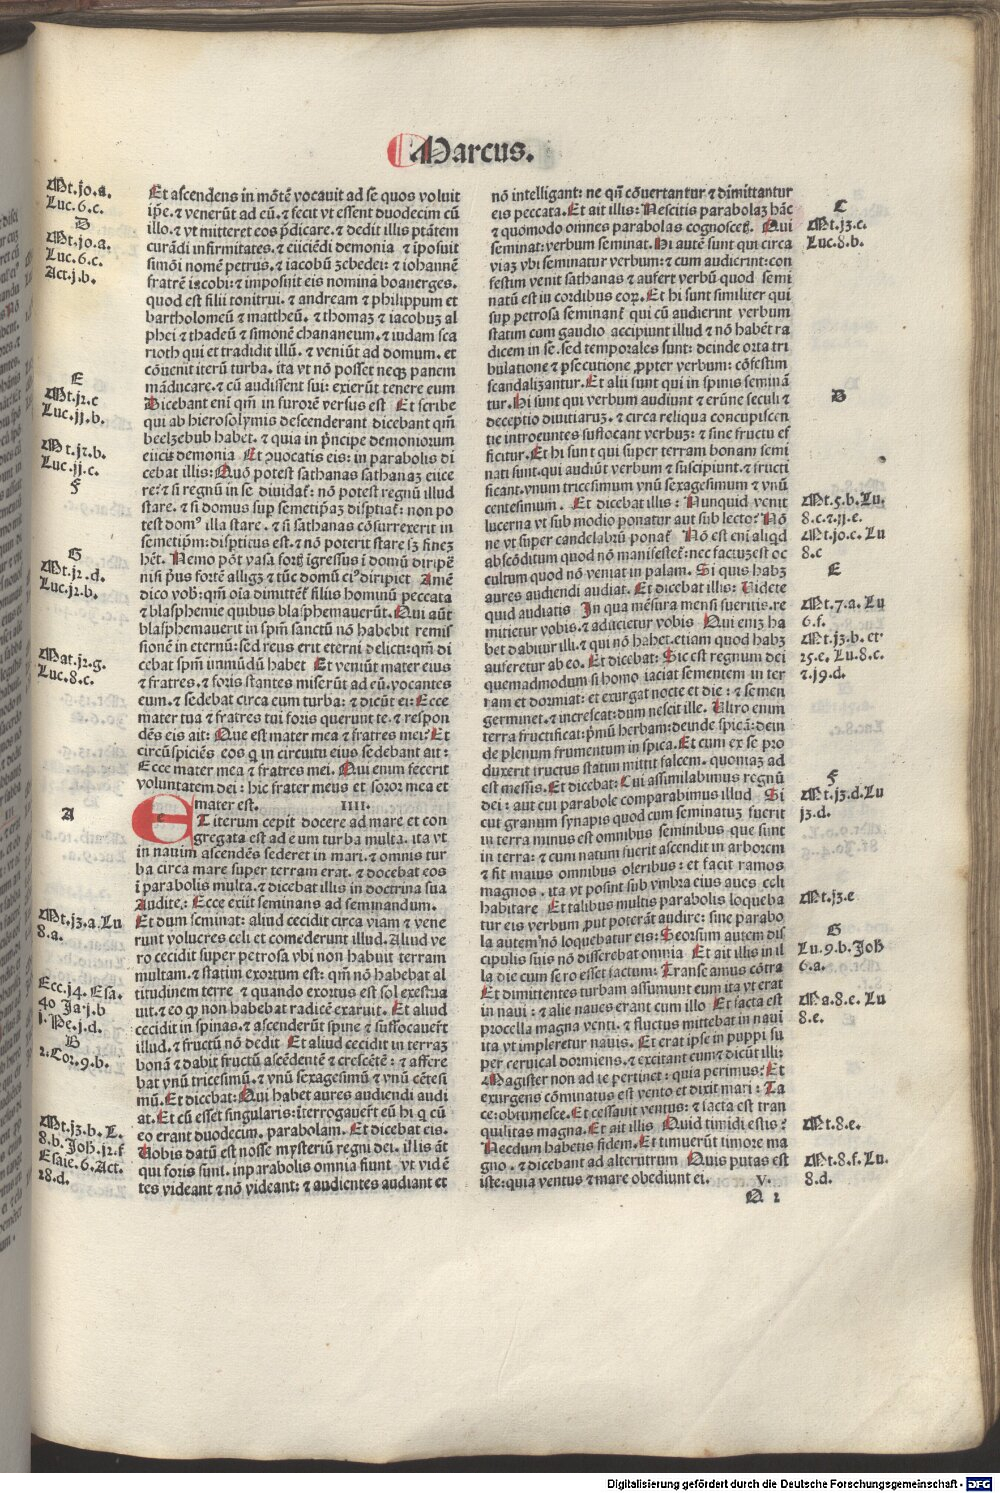 Marcus.
Mt.jo.a.
Luc.6.c.
D
Mt.jo.a.
Luc.6.c.
Act.j.b.
E
Mt.j2.c
Luc.jj.b.
Mt.j2.b.
Luc.jj.c.
F
G
Mt.j2.d.
Luc.j2.b.
Mat.j2.g.
Luc.8.c.
A
Mt.j3.a.Lu
8.a.
Ecc.j4. Esa.
40 Ja.j.b
j.Pe.j.d.
B
2.Cor.9.b.
Mt.j3.b. L.
8.b. Joh.j2.f
Esaie.6. Act.
28.d.
Et ascendens in mōtē vocauit ad se quos voluit
ip̄e. ⁊ venerūt ad eū. ⁊ fecit vt essent duodecim cū
illo. ⁊ vt mitteret eos p̄dicare. ⁊ dedit illis ptātem
curādi infirmitates. ⁊ eiiciēdi demonia ⁊ īposuit
simōi nomē petrus. ⁊ iacobū zebedei: ⁊ iohannē
fratrē iacobi: ⁊ imposuit eis nomina boanerges.
quod est filii tonitrui. ⁊ andream ⁊ philippum et
bartholomeū ⁊ mattheū. ⁊ thomaꝫ ⁊ iacobuꝫ al
phei ⁊ thadeū ⁊ simonē chananeum. ⁊ iudam sca
rioth qui et tradidit illū. ⁊ veniūt ad domum. et
cōuenit iterū turba. ita vt nō posset neqꝫ panem
māducare. ⁊ cū audissent sui: exierūt tenere eum
Dicebant enī qm̄ in furorē versus est Et scribe
qui ab hierosolymis descenderant dicebant qm̄
beelzebub habet. ⁊ quia in p̄ncipe demoniorum
eiicit demonia Et ꝯuocatis eis: in parabolis di
cebat illis: Quō potest sathanas sathanaꝫ eiice
re: ⁊ si regnū in se diuidat᷑: nō potest regnū illud
stare. ⁊ si domus sup semetipaꝫ disp̄tiat᷑: non po
test domꝰ illa stare. ⁊ si sathanas cōsurrexerit in
semetip̄m: disp̄ticus est. ⁊ nō poterit stare sꝫ fineꝫ
hēt. Nemo pōt vasa fort᷑ īgressus ī domū diripē
nisi p̄us fortē alligꝫ ⁊ tūc domū eiꝰ diripiet Amē
dico vob: qm̄ oīa dimittēt᷑ filiis hominū peccata
⁊ blasphemie quibus blasphemauerūt. Qui aūt
blasphemauerit in sp̄m sanctū nō habebit remis
sionē in eternū: sed reus erit eterni delicti: qm̄ di
cebāt sp̄m immūdū habet Et veniūt mater eius
⁊ fratres. ⁊ foris stantes miserūt ad eū. vocantes
eum. ⁊ sedebat circa eum turba: ⁊ dicūt ei: Ecce
mater tua ⁊ fratres tui foris querunt te. ⁊ respon
dēs eis ait: Que est mater mea ⁊ fratres mei? Et
circūspiciēs eos q̄ in circuitu eius sedebant ait:
Ecce mater mea ⁊ fratres mei. Qui enim fecerit
voluntatem dei: hic frater meus et soror mea et
mater est. IIII.
ET iterum cepit docere ad mare et con
gregata est ad eum turba multa. ita vt
in nauim ascendēs sederet in mari. ⁊ omnis tur
ba circa mare super terram erat. ⁊ docebat eos
ī parabolis multa. ⁊ dicebat illis in doctrina sua
Audite: Ecce exiit seminans ad seminandum.
Et dum seminat: aliud cecidit circa viam ⁊ vene
runt volucres celi et comederunt illud. Aliud ve
ro cecidit super petrosa vbi non habuit terram
multam. ⁊ statim exortum est: qm̄ nō habebat al
titudinem terre ⁊ quando exortus est sol exestua
uit. ⁊ eo ꝙ non habebat radicē exaruit. Et aliud
cecidit in spinas. ⁊ ascenderūt spine ⁊ suffocauert᷑
illud. ⁊ fructū nō dedit Et aliud cecidit in terraꝫ
bonā ⁊ dabit fructū ascēdentē ⁊ crescētē: ⁊ affere
bat vnū tricesimū. ⁊ vnū sexagesimū ⁊ vnū cētesi
mū. Et dicebat: Qui habet aures audiendi audi
at. Et cū esset singularis: īterrogauert᷑ eū hi q̄ cū
eo erant duodecim. parabolam. Et dicebat eis.
Uobis datū est nosse mysteriū regni dei. illis āt
qui foris sunt. in parabolis omnia fiunt vt vidē
tes videant ⁊ nō videant: ⁊ audientes audiant et
nō intelligant: ne qn̄ cōuertantur ⁊ dimittantur
eis peccata. Et ait illis: Nescitis parabolaꝫ hāc
⁊ quomodo omnes parabolas cognoscet᷑. Qui
seminat: verbum seminat. Hi autē sunt qui circa
viaꝫ vbi seminatur verbum: ⁊ cum audierint: con
festim venit sathanas ⁊ aufert verbū quod semi
natū est in cordibus eoꝝ. Et hi sunt similiter qui
sup petrosa seminant᷑ qui cū audierint verbum
statim cum gaudio accipiunt illud ⁊ nō habēt ra
dicem in se. sed temporales sunt: deinde orta tri
bulatione ⁊ ꝑsecutione ꝓpter verbum: cōfestim
scandalizantur. Et alii sunt qui in spinis seminā
tur. Hi sunt qui verbum audiunt ⁊ erūne seculi ⁊
deceptio diuitiaruꝫ. ⁊ circa reliqua concupiscen
tie introeuntes suffocant verbuꝫ: ⁊ sine fructu ef
ficitur. Et hi sunt qui super terram bonam semi
nati sunt. qui audiūt verbum ⁊ suscipiunt. ⁊ fructi
ficant. vnum tricesimum vnū sexagesimum ⁊ vnū
centesimum. Et dicebat illis: Nunquid venit
lucerna vt sub modio ponatur aut sub lecto? Nō
ne vt super candelabrū ponat᷑ Nō est enī aliqd
abscōditum quod nō manifestet᷑: nec factuꝫ est oc
cultum quod nō veniat in palam. Si quis habꝫ
aures audiendi audiat. Et dicebat illis: Uidete
quid audiatis In qua mēsura mensi fueritis. re
mitietur vobis. ⁊ adiicietur vobis Qui enīꝫ ha
bet dabitur illi. ⁊ qui nō habet. etiam quod habꝫ
auferetur ab eo. Et dicebat: Sic est regnum dei
quemadmodum si homo iaciat sementem in ter
ram et dormiat: et exurgat nocte et die: ⁊ semen
germinet. ⁊ increscat: dum nescit ille. Ultro enim
terra fructificat: p̄mū herbam: deinde spicā: dein
de plenum frumentum in spica. Et cum ex se pro
duxerit fructus statim mittit falcem. quoniaꝫ ad
est messis. Et dicebat: Cui assimilabimus regnū
dei: aut cui parabole comparabimus illud Si
cut granum synapis quod cum seminatuꝫ fuerit
in terra minus est omnibus seminibus que sunt
in terra: ⁊ cum natum fuerit ascendit in arborem
⁊ fit maius omnibus oleribus: et facit ramos
magnos. ita vt possint sub vmbra eius aues celi
habitare Et talibus multis parabolis loqueba
tur eis verbum ꝓut poterāt audire: sine parabo
la autem nō loquebatur eis: Seorsum autem dis
cipulis suis nō disserebat omnia Et ait illis in il
la die cum sero esset factum: Transeamus cōtra
Et dimittentes turbam assumunt eum ita vt erat
in naui: ⁊ alie naues erant cum illo Et facta est
procella magna venti. ⁊ fluctus mittebat in naui
ita vt impleretur nauis. Et erat ipse in puppi su
per ceruical dormiens. ⁊ excitant eum ⁊ dicūt illi:
Magister non ad te pertinet: quia perimus? Et
exurgens cōminatus est vento et dixit mari: Ta
ce: obtumesce. Et cessauit ventus: ⁊ facta est tran
quilitas magna. Et ait illis Quid timidi estis?
Necdum habetis fidem. Et timuerūt timore ma
gno. ⁊ dicebant ad alterutrum Quis putas est
iste: quia ventus ⁊ mare obediunt ei. V.
Q 2
C
Mt.j3.c.
Luc.8.b.
D
Mt.5.b. Lu.
8.c.⁊.jj.e.
Mt.jo.c. Lu
8.c
E
Mt.7.a. Lu
6.f.
Mt.j3.b. et
25.c. Lu.8.c.
⁊.j9.d.
F
Mt.j3.d. Lu
j3.d.
Mt.j3.e
G
Lu.9.b. Joh
6.a.
Ma.8.e. Lu
8.e.
Mt.8.e.
Mt.8.f. Lu.
8.d.
Digitalisierung gefördert durch die Deutsche Forschungsgemeinschaft - DFG